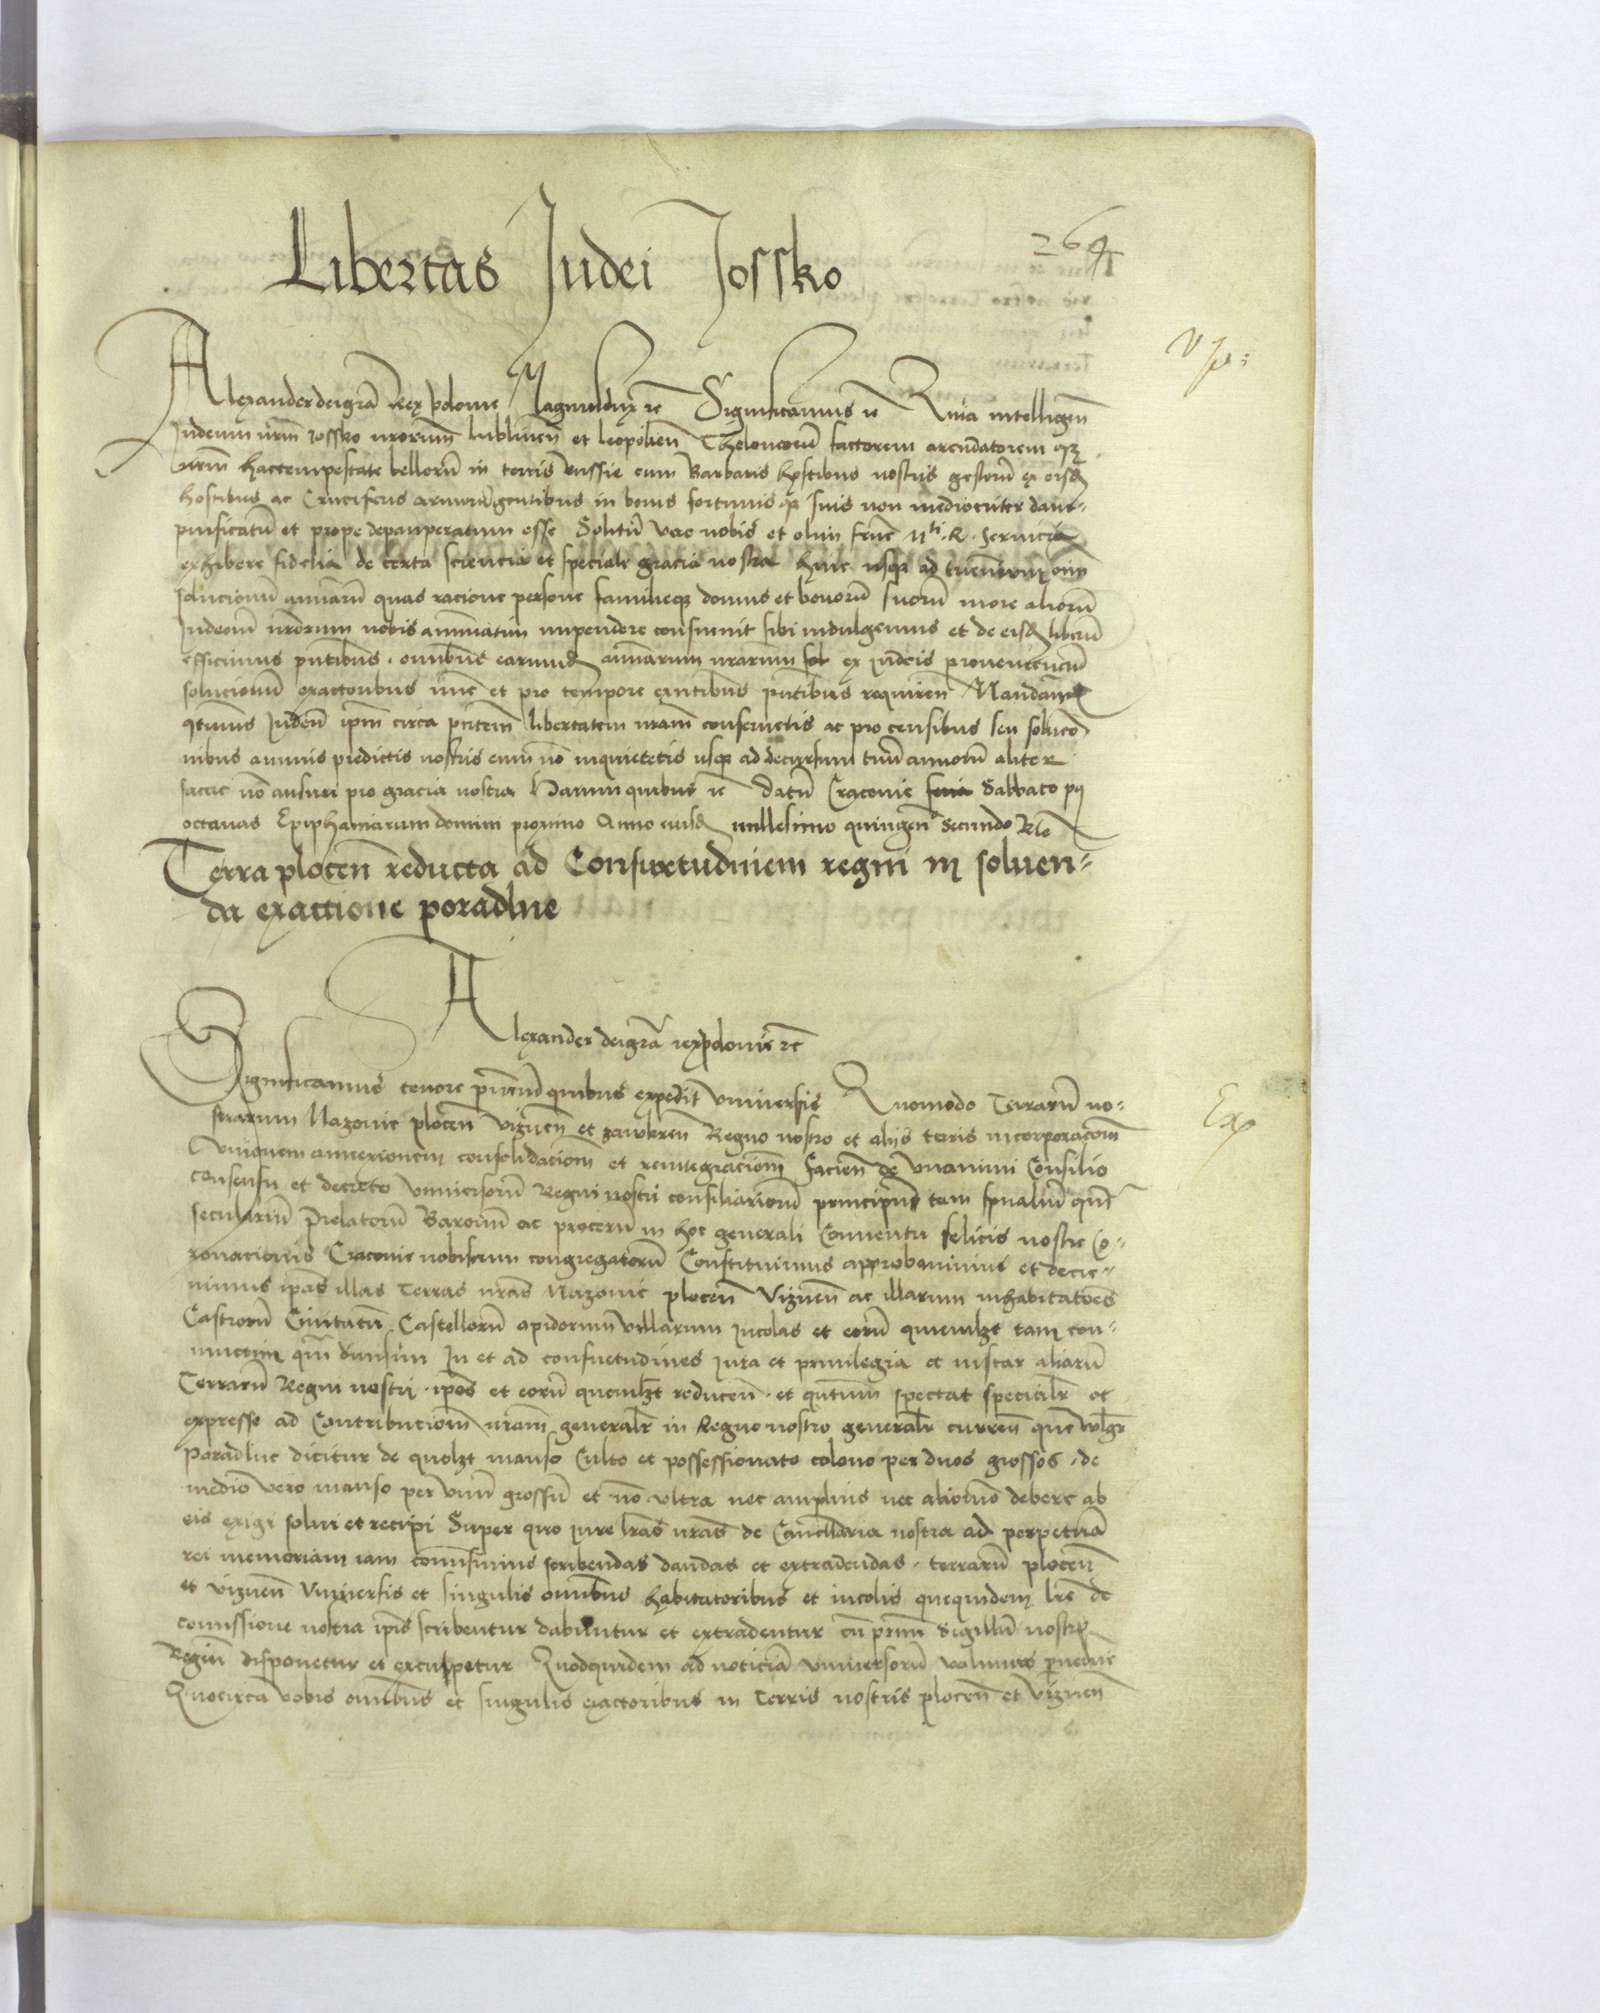 Libertas Judei Jossko
264
Alexander dei gra Rex polonie Magnus dux etc Significamus etc Quia intelligen
Judeum nrm Jossko nrorum lublinen et leopolien Theloneorum factorem arendatorem qz
nrm hac tempestate bellorum in terris Russie cum Barbaris hostibus nostris gestorum ex eisd
hostibus ac Cruciferis in bonis fortunis qz suis non mediocriter damp-
nificatum et prope depauperatum esse Solitum vero nobis et olim R. servicia
exhibere fidelia de certa sciencia et speciali gracia nostra huic usqz ad trienniũ oim
solucionum annuarum quas racione persone familieqz domus et bonorum suorum more aliorum
Judeorum nrorum nobis annuatim impendere consuevit sibi indulgemus et de eisd liberum
efficimus pntibus. omnibus earund annuarum nrarum sol ex Judeis provenienciũ
solucionum exactoribus nunc et pro tempore existentibus pntibus requiren Mandamus
qtinus Judeum ipm circa pntem libertatem nram conservetis ac pro censibus seu solucõ
nibus annuis predictis nostris eum nõ inquietetis usqz ad decursum trium annorum aliter
facere nõ ausuri pro gracia nostra Harum quibus etc Datum Cracovie feria Sabbato pt
octavas Epiphaniarum domini proximo Anno eiusd millesimo quingen secundo Rlo
Terra plocen reducta ad Consuetudinem regni in solven-
da exactione poradlne
Alexander dei gra rex polonie etc
Significamus tenore pntium quibus expedit universis Quomodo Terrarum no-
strarum Mazovie plocen vizuen et zawkren Regno nostro et aliis terris incorporacõem
Unionem annexionem consolidacionem et reintegracionem facien de unanimi Consilio
consensu et decreto universorum Regni nostri consiliariorum principum tam spualium qm
secularium Prelatorum Baronum ac procerum in hoc generali Conventu felicis nostre Co-
ronacionis Cracovie nobiscum congregatorum Constituimus approbavimus et decre-
vimus ipas illas Terras nras Mazovie plocen vizuen ac illarum inhabitatores
Castrorum Civitatum Castellorum opidorum villarum Incolas et eorum quemlzt tam con-
iunctim qm divisim In et ad consuetudines Jura et privilegia et instar aliarum
Terrarum Regni nostri. ipos et eorum quemlzt reducen. et qntum spectat specialr et
expresse ad Contribucionem nram generalr in Regno nostro generalr curren que vlgr
Poradlne dicitur de quolzt manso culto et possessionato colono per duos grossos. de
medio vero manso per unum grossum et nõ ultra nec amplius nec alio modo debere ab
eis exigi solvi et recipi Super quo iure lras nras de Cancellaria nostra ad perpetuã
rei memoriam iam comisimus scribendas dandas et extradendas. terrarum plocen
et vizuen Universis et singulis omnibus habitatoribus et incolis quequidem lre de
comissione nostra ipis scribentur dabuntur et extradentur cũ primũ Sigillum nostrum
Regium disponetur et exculpetur Quodquidem ad noticiã universorum volumus pvenire
Quocirca vobis omnibus et singulis exactoribus in Terris nostris plocen et vizuen
Exp